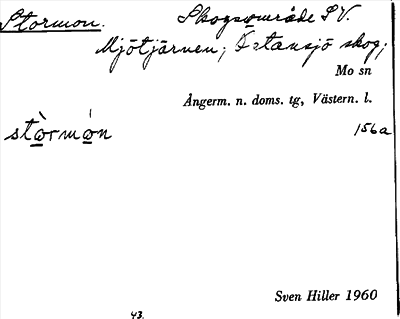 Stormon. Skogsområde SV.
Mjötjärnen; Östansjö skog;
Mo sn
Ångerm. n. doms. tg, Västern. l.
156a
stò̱rmó̱n
Sven Hiller 1960
43.